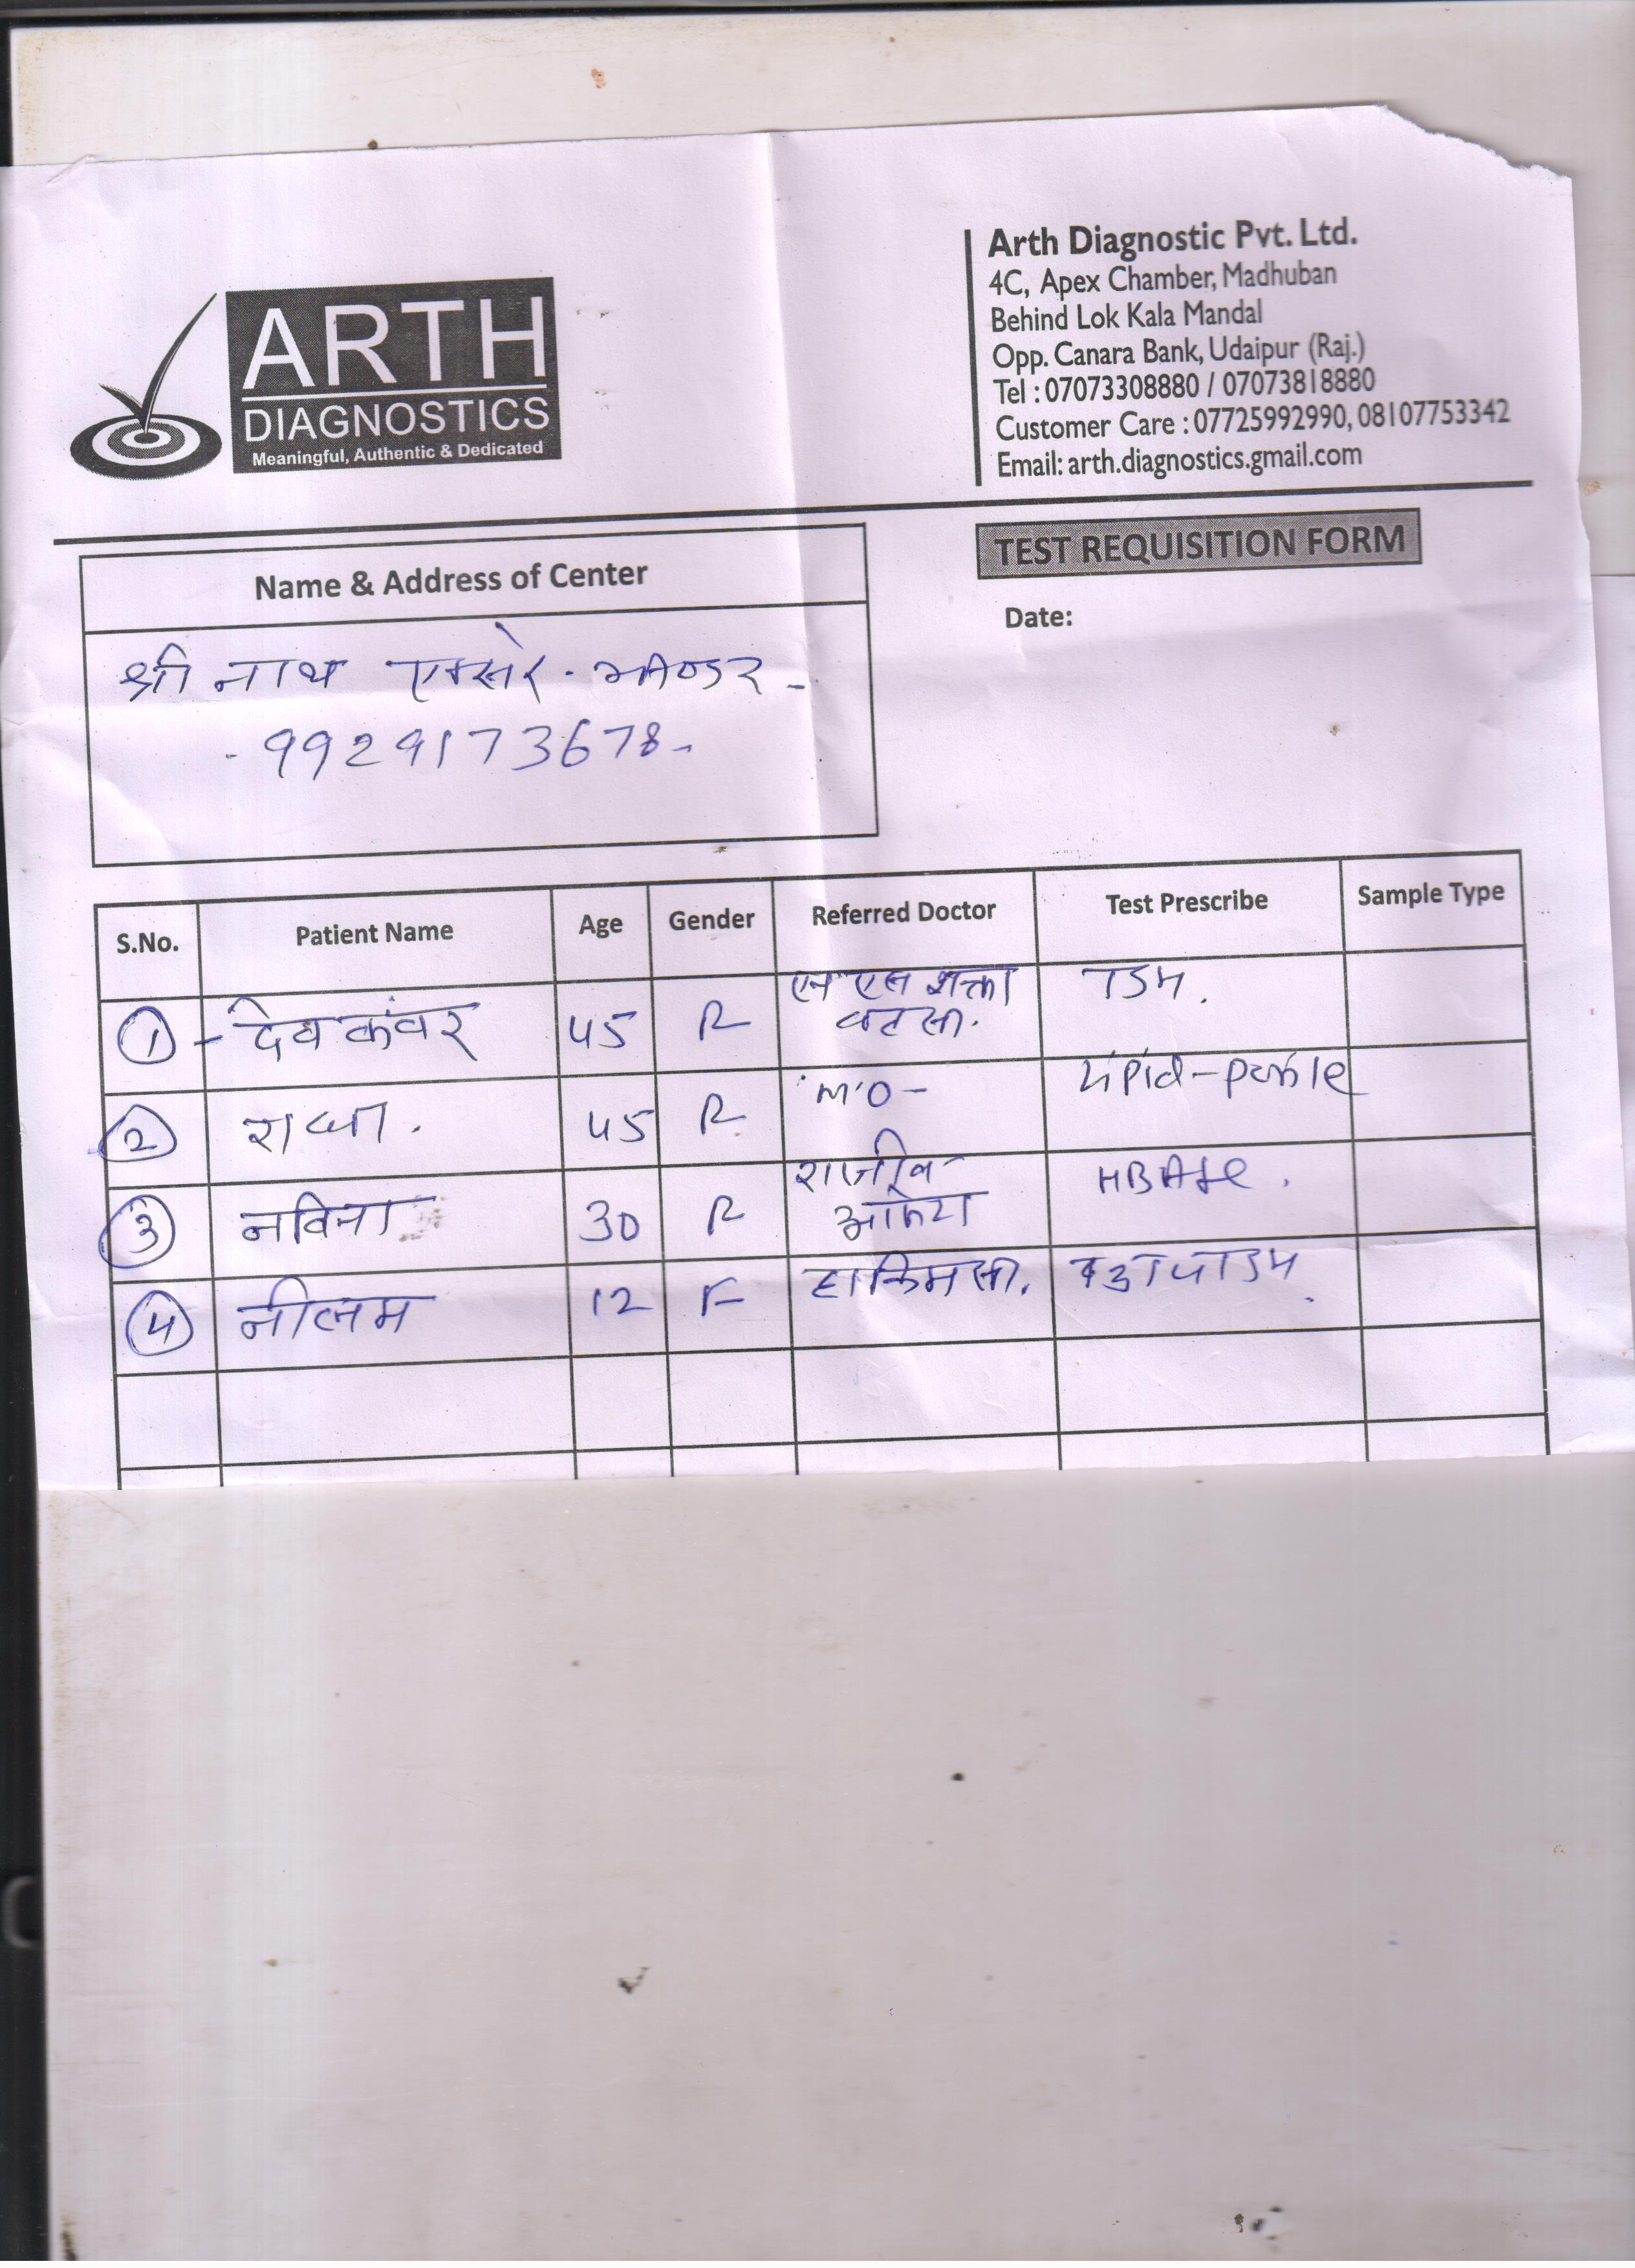 ARTH
DIAGNOSTICS
Meaningful, Authentic & Dedicated
Arth Diagnostic Pvt. Ltd.
4C, Apex Chamber, Madhuban
Behind Lok Kala Mandal
Opp. Canara Bank, Udaipur (Raj.)
Tel : 07073308880 / 07073818880
Customer Care : 07725992990, 08107753342
Email: arth.diagnostics.gmail.com
TEST REQUISITION FORM
Date:
Name & Address of Center
श्री नाथ एक्सरे
9929173678
S.No. Patient Name Age Gender Referred Doctor Test Prescribe Sample Type
1 देव कंवर 45 F एन एल
2 राधा 45 F M.O
3 नविना 30 F राजीव
4 नीलम 12 F